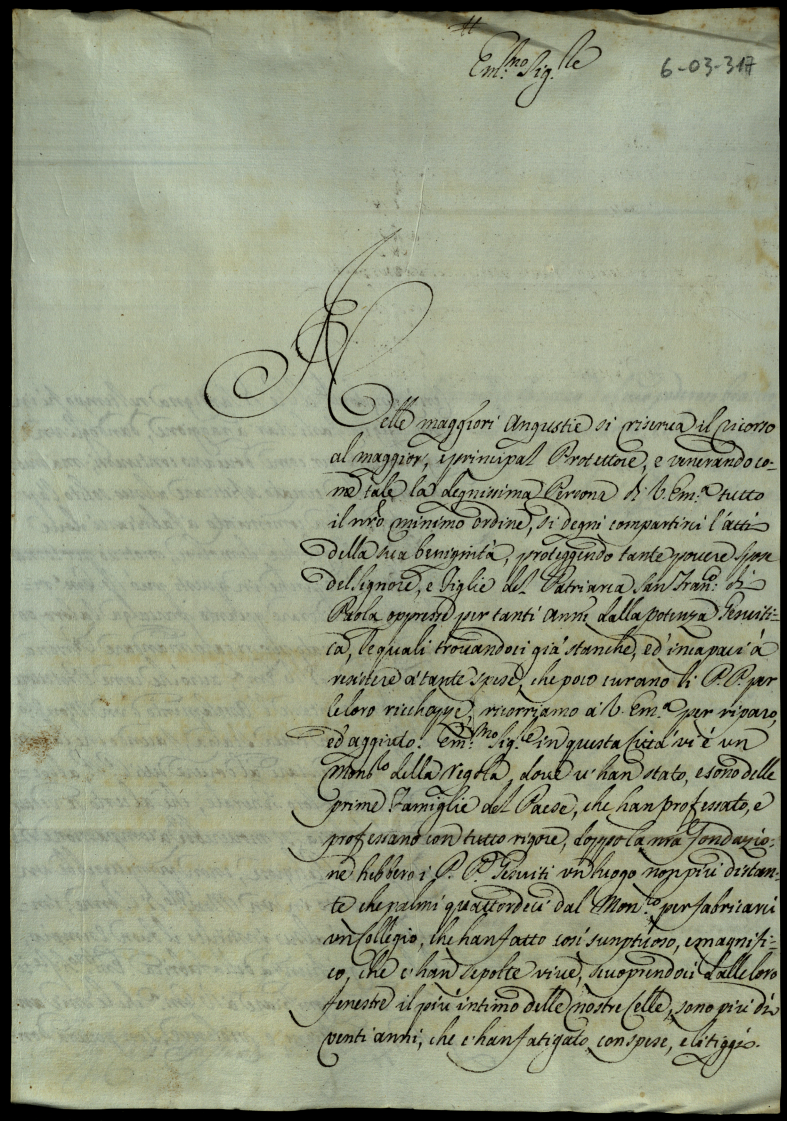 Em.mo Sig.le
6-03-317
Nelle maggiori Angustie si riserva il ricorso
al maggior, e principal Protettore, e venerando co-
me tale la degnissima Persona di V. Em.a tutto
il nro minimo ordine, si degni compartirci l'atti
della sua benignità, proteggendo tante povere spose
del Signore, e figlie del Patriarca San Fran.o di
Paola oppresse per tanti Anni dalla potenza Gesuiti-
ca, le quali trovandoci già stanche, ed' incapaci à
resistere à tante spese, che poco curano li P. P. per
le loro ricchezze, ricorriamo à V. Em.a per riparo,
ed' aggiuto. Em.mo Sig.e in questa Città vi è un
Mon.ro della regola, dove v' han stato, e sono delle
prime Famiglie del Paese, che han professato, e
professano con tutto rigore, doppo la nra Fondazio-
ne hebbero i P. P. Gesuiti un luogo non più distan-
te che palmi quattordeci dal Mon.ro per fabricarci
un Collegio, che han fatto così sunptuoso, e magnifi-
co, che c' han sepolte vive, scuoprendoci dalle loro
fenestre il più intimo delle nostre Celle, sono più di
venti anni, che c' han fatigato con spese, e litiggi.